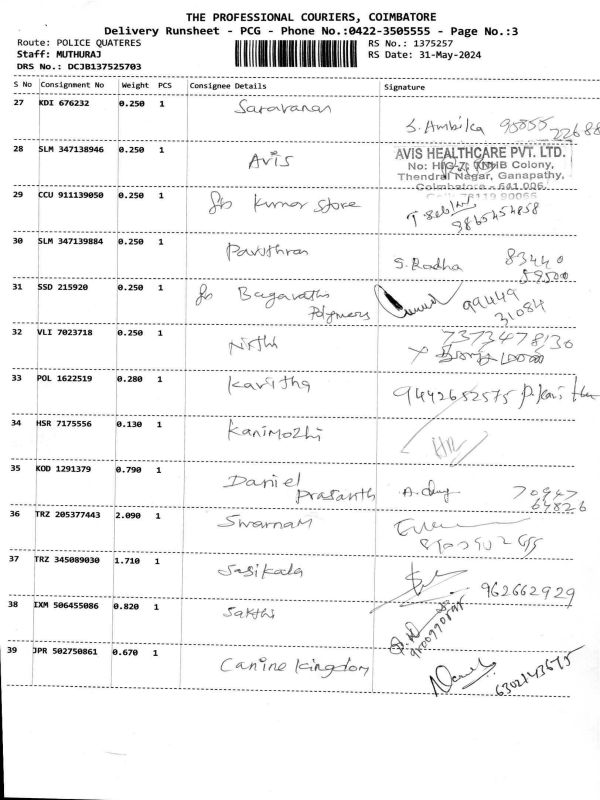 THE PROFESSIONAL COURIERS, COIMBATORE
Delivery Runsheet - PCG - Phone No.:0422-3505555 - Page No.:3
Route: POLICE QUATERES RS No.: 1375257
Staff: MUTHURAJ RS Date: 31-May-2024
DRS No.: DCJB137525703
S No Consignment No Weight PCS Consignee Details Signature
27 KDI 676232 0.250 1 Saravanan
S. Ambika 95855 22688
28 SLM 347138946 0.250 1 Avis AVIS HEALTHCARE PVT. LTD.
No: HIG-7, TNHB Colony,
Thendral Nagar, Ganapathy,
Coimbatore - 641 006.
29 CCU 911139050 0.250 1 Kumar Store
9865454858
30 SLM 347139884 0.250 1 Pavithran S. Radha 83440
59500
31 SSD 215920 0.250 1 Bagavathi Polymers 99449
31084
32 VLI 7023718 0.250 1 Nisthi 7373478130
33 POL 1622519 0.280 1 Kavitha 9442652575
34 HSR 7175556 0.130 1 Kanimozhi
35 KOD 1291379 0.790 1 Daniel Prasanth 70947
64826
36 TRZ 205377443 2.090 1 Swarnam
37 TRZ 345089030 1.710 1 Sasikala 962662929
38 IXM 506455086 0.820 1 Sakthi
39 JPR 502750861 0.670 1 Canine Kingdom 6302143675